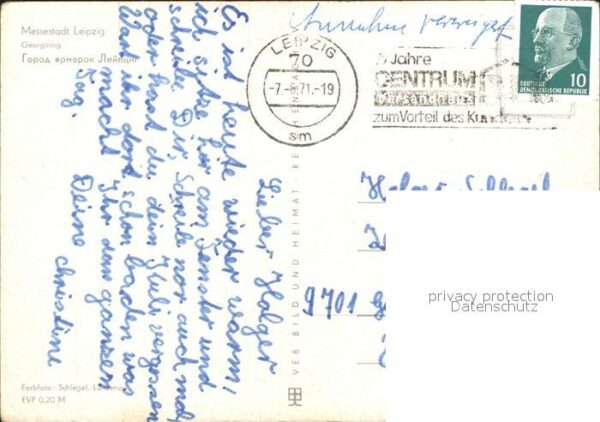 Messestadt Leipzig
Georgiring
Город ярмарок Лейпциг
Annahme verweigert
LEIPZIG
70
-7.-8.71.-19
sm
Jahre
CENTRUM
Versandhaus
zum Vorteil des Kunden
10
DEUTSCHE
DEMOKRATISCHE REPUBLIK
Lieber Holger
Es ist heute wieder warm,
ich sitze hier am Fenster und
schreibe Dir. Schreibe nor auch mal
oder hast du dein Juli vergessen
Wart ihr dort schon baden was
macht Ihr den ganzen
Tag.
Deine Christine
VEB BILD UND HEIMAT
Holger
9701
privacy protection
Datenschutz
Farbfoto: Schlegel,
EVP 0,20 M.